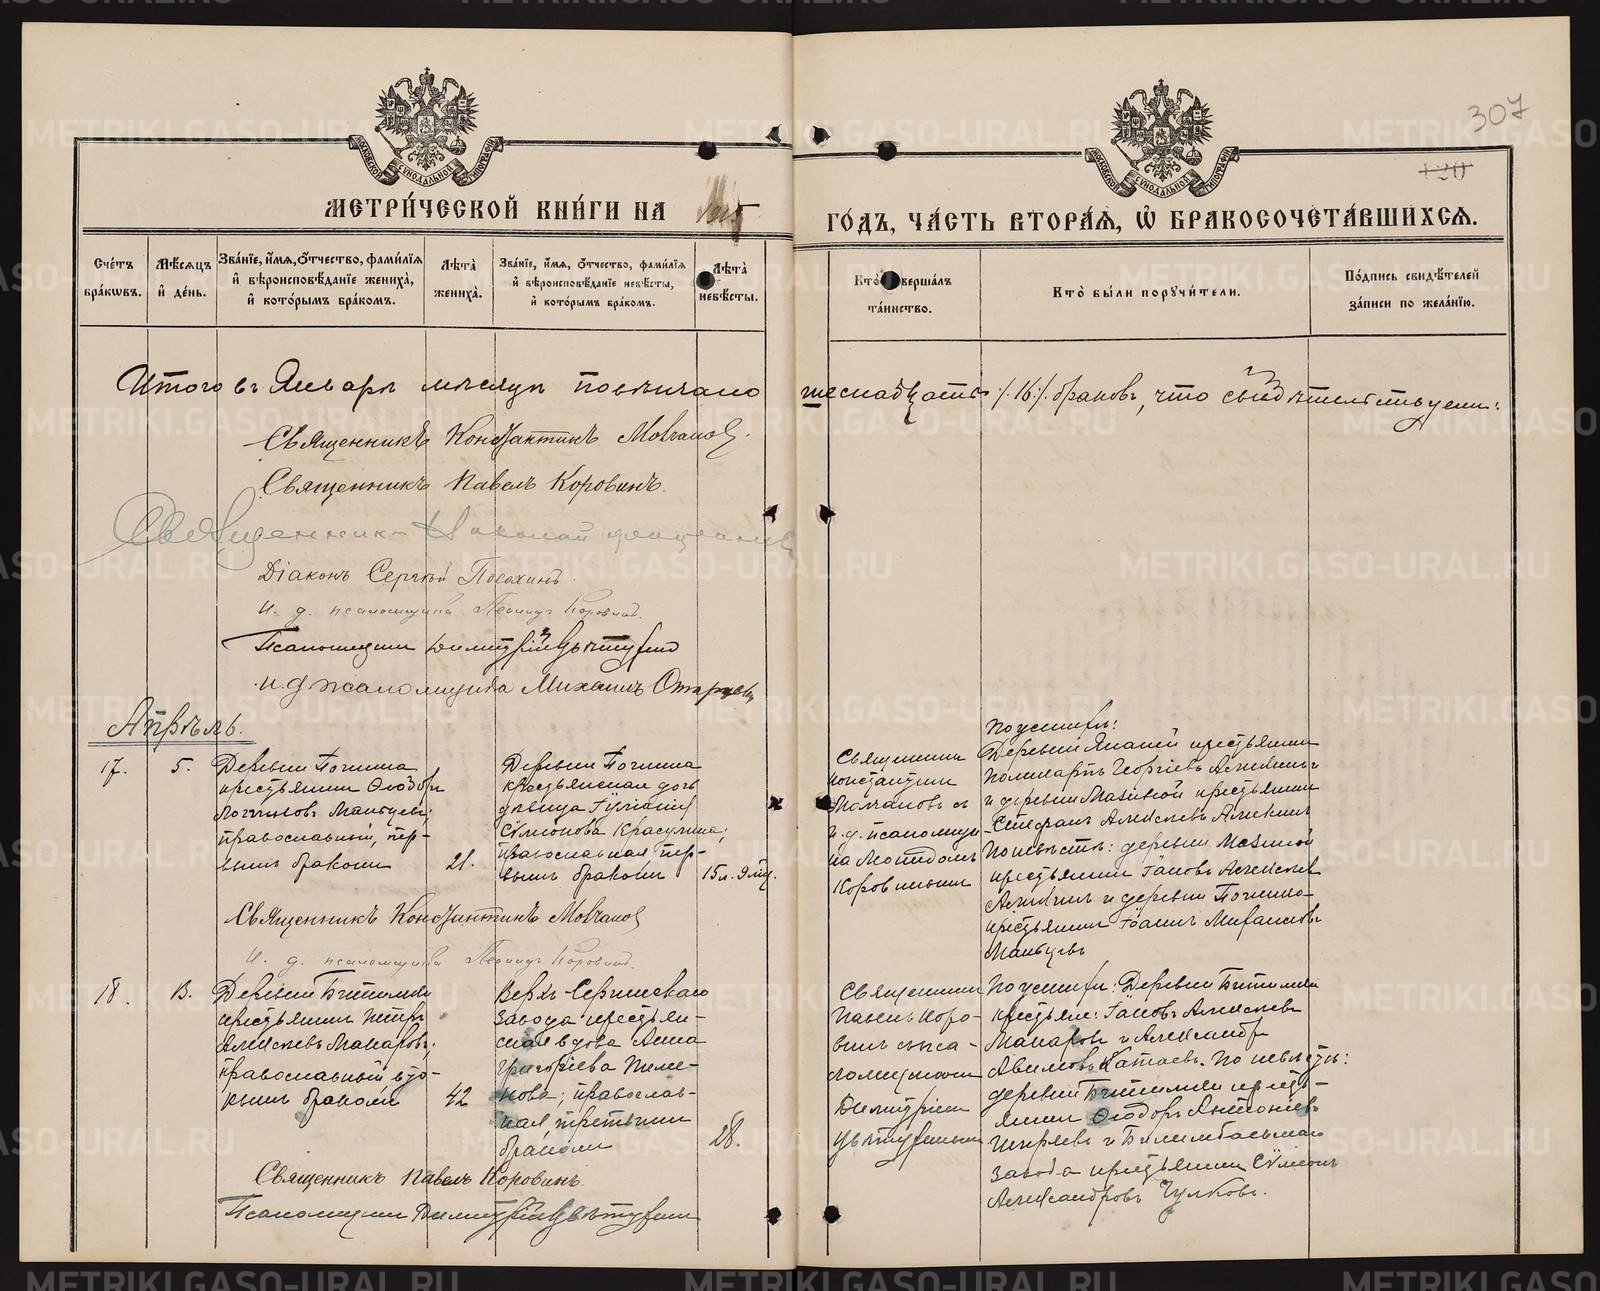 307
120
МОСКОВСКОЙ СѴНОДАЛЬНОЙ ТИПОГРАФІИ
МОСКОВСКОЙ СѴНОДАЛЬНОЙ ТИПОГРАФІИ
МЕТРИ́ЧЕСКОЙ КНИ́ГИ НА
ГО́ДЪ, ЧА́СТЬ ВТОРА́Я, Ѽ БРАКОСОЧЕТА́ВШИХСЯ.
Сче́тъ бра́кѡвъ.
Мѣ́сяцъ и҆ де́нь.
Зва́нїе, и҆́мя, ѻ҆́тчество, фами́лїя
и҆ вѣроисповѣ́данїе жениха̀,
и҆ кото́рымъ бра́комъ.
Лѣ́та жениха̀.
Зва́нїе, и҆́мя, ѻ҆́тчество, фами́лїя
и҆ вѣроисповѣ́данїе невѣ́сты,
и҆ кото́рымъ бра́комъ.
Лѣ́та невѣ́сты.
Кто̀ соверша́лъ
та́инство.
Кто̀ бы́ли порꙋчи́тели.
По́дпись свидѣ́телей
за́писи по жела́нїю.
Итого въ Январѣ мѣсяцѣ повѣнчано шеснадцать /.16./. браковъ, что свидѣтельствуемъ:
Священникъ Константинъ Молчановъ.
Священникъ Павелъ Коровинъ.
Священникъ Николай
Діаконъ Сергѣй Посохинъ.
И. д. псаломщика Леонидъ Коровинъ.
Псаломщикъ Димитрій Цвѣтухинъ
и. д. псаломщика Михаилъ
Апрѣль.
17.
5.
Деревни Починка
крестьянинъ Ѳеодоръ
Логиновъ Мальцевъ;
православный, пер-
вымъ бракомъ
21.
Деревни Починка
крестьянская дочь
дѣвица Іуліанія
Сѵмеонова Красулина;
православная, пер-
вымъ бракомъ
15 л. 9 мц.
Священникъ
Константинъ
Молчановъ съ
и. д. псаломщи-
ка Леонидомъ
Коровинымъ
По женихѣ:
Деревни крестьянинъ
Поликарпъ Георгіевъ Алекинъ
и деревни Мазиной крестьянинъ
Стефанъ Алексѣевъ Алекинъ
По невѣстѣ: деревни Мазиной
крестьянинъ Іаковъ Алексѣевъ
Алекинъ и деревни Починка
крестьянинъ Іоаннъ Михаиловъ
Мальцевъ
Священникъ Константинъ Молчановъ
И. д. псаломщика Леонидъ Коровинъ.
18.
13.
Деревни Битимки
крестьянинъ Петръ
Алексѣевъ Макаровъ;
православный, вто-
рымъ бракомъ
42
Верхъ-Сергинскаго
завода крестьян-
ская вдова Анна
Григоріева Пиме-
нова; православ-
ная, третьимъ
бракомъ
28.
Священникъ
Павелъ Коро-
винъ съ пса-
ломщикомъ
Димитріемъ
Цвѣтухинымъ
По женихѣ: Деревни Битимки
крестьяне: Іаковъ Алексѣевъ
Макаровъ и Александръ
Авимовъ Катаевъ. По невѣстѣ:
деревни Битимки кресть-
янинъ Ѳеодоръ Антоніевъ
Ширяевъ и Билимбаевскаго
завода крестьянинъ Сѵмеонъ
Александровъ Чулковъ.
Священникъ Павелъ Коровинъ.
Псаломщикъ Димитрій Цвѣтухинъ
METRIKI.GASO-URAL.RU